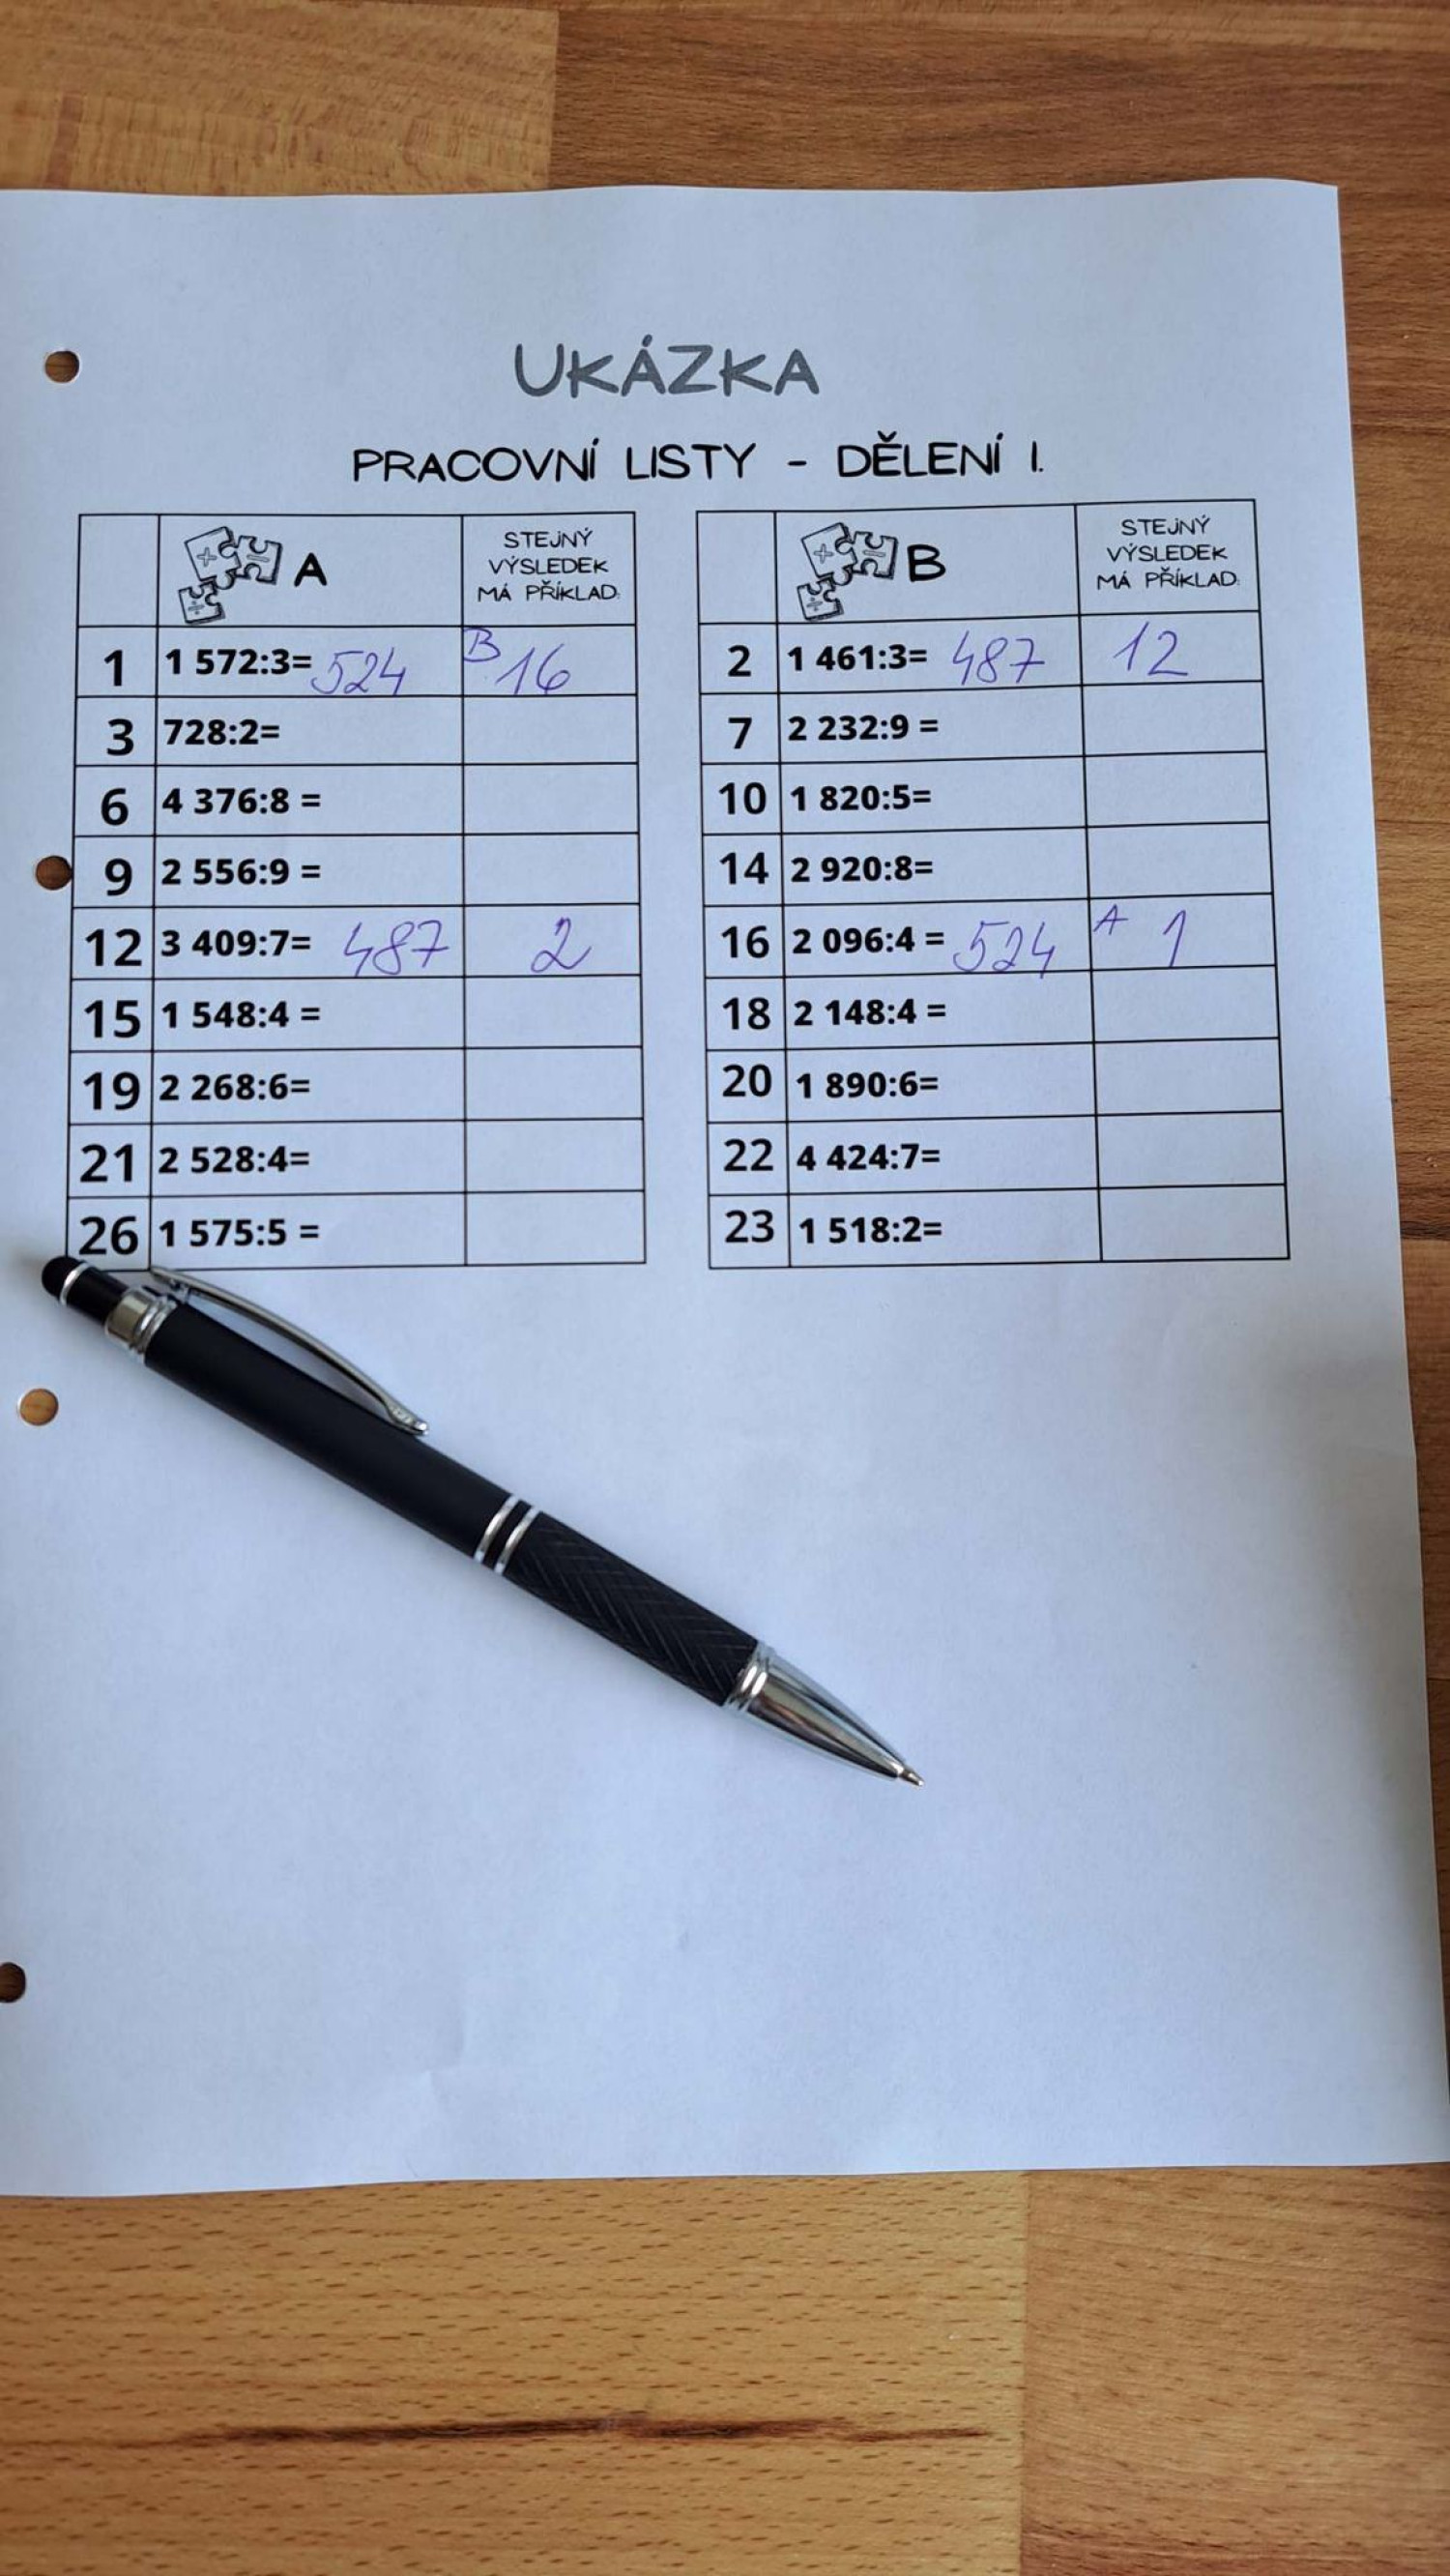 UKÁZKA
PRACOVNÍ LISTY - DĚLENÍ I.
A STEJNÝ VÝSLEDEK MÁ PŘÍKLAD:
1 1 572:3= 524 B 16
3 728:2=
6 4 376:8 =
9 2 556:9 =
12 3 409:7= 487 2
15 1 548:4 =
19 2 268:6=
21 2 528:4=
26 1 575:5 =
B STEJNÝ VÝSLEDEK MÁ PŘÍKLAD:
2 1 461:3= 487 12
7 2 232:9 =
10 1 820:5=
14 2 920:8=
16 2 096:4 = 524 A 1
18 2 148:4 =
20 1 890:6=
22 4 424:7=
23 1 518:2=